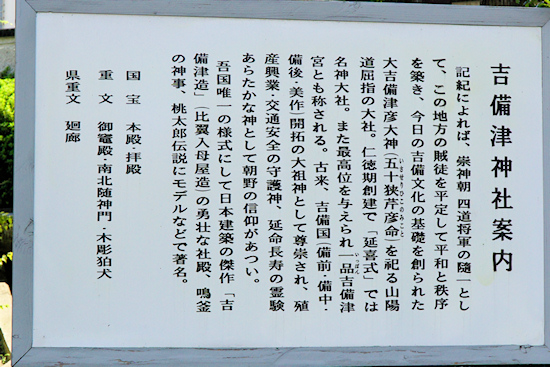 吉備津神社案内
記紀によれば、崇神朝 四道将軍の随一とし
て、この地方の賊徒を平定して平和と秩序
を築き、今日の吉備文化の基礎を創られた
大吉備津彦大神(五十狭芹彦命)を祀る山陽
いさせりひこのみこと
道屈指の大社。仁徳期創建で「延喜式」では
名神大社。また最高位を与えられ一品吉備津
いっぽん
宮とも称される。古来、吉備国(備前・備中・
備後・美作)開拓の大祖神として尊崇され、殖
産興業・交通安全の守護神、延命長寿の霊験
あらたかな神として朝野の信仰があつい。
吾国唯一の様式にして日本建築の傑作「吉
備津造」(比翼入母屋造)の勇壮な社殿、鳴釜
の神事、桃太郎伝説にモデルなどで著名。
国宝 本殿・拝殿
重文 御竈殿・南北随神門・木彫狛犬
県重文 廻廊